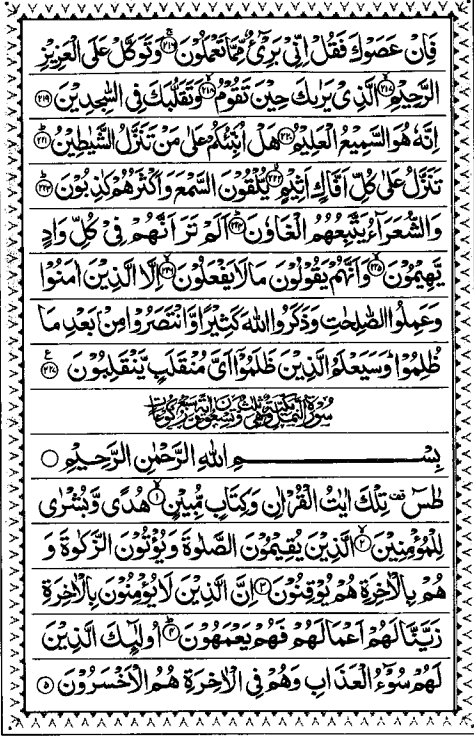 فَاِنْ عَصَوْكَ فَقُلْ اِنِّىْ بَرِىْٓءٌ مِّمَّا تَعْمَلُوْنَ ۚ﴿۲۱۶﴾ وَتَوَكَّلْ عَلَى الْعَزِيْزِ
الرَّحِيْمِ ۙ﴿۲۱۷﴾ الَّذِىْ يَرٰىكَ حِيْنَ تَقُوْمُ ۙ﴿۲۱۸﴾ وَتَقَلُّبَكَ فِى السّٰجِدِيْنَ ﴿۲۱۹﴾
اِنَّهٗ هُوَ السَّمِيْعُ الْعَلِيْمُ ﴿۲۲۰﴾ هَلْ اُنَبِّئُكُمْ عَلٰى مَنْ تَنَزَّلُ الشَّيٰطِيْنُ ؕ﴿۲۲۱﴾
تَنَزَّلُ عَلٰى كُلِّ اَفَّاكٍ اَثِيْمٍ ۙ﴿۲۲۲﴾ يُّلْقُوْنَ السَّمْعَ وَاَكْثَرُهُمْ كٰذِبُوْنَ ؕ﴿۲۲۳﴾
وَالشُّعَرَآءُ يَتَّبِعُهُمُ الْغَاوٗنَ ؕ﴿۲۲۴﴾ اَلَمْ تَرَ اَنَّهُمْ فِىْ كُلِّ وَادٍ
يَّهِيْمُوْنَ ۙ﴿۲۲۵﴾ وَاَنَّهُمْ يَقُوْلُوْنَ مَا لَا يَفْعَلُوْنَ ۙ﴿۲۲۶﴾ اِلَّا الَّذِيْنَ اٰمَنُوْا
وَعَمِلُوا الصّٰلِحٰتِ وَذَكَرُوا اللّٰهَ كَثِيْرًا وَّانْتَصَرُوْا مِنْۢ بَعْدِ مَا
ظُلِمُوْا ؕ وَسَيَعْلَمُ الَّذِيْنَ ظَلَمُوْۤا اَىَّ مُنْقَلَبٍ يَّنْقَلِبُوْنَ ﴿۲۲۷﴾ ع
سُوْرَةُ النَّمْلِ مَكِّيَّةٌ وَّهِىَ ثَلٰثٌ وَّتِسْعُوْنَ اٰيَةً وَّسَبْعُ رُكُوْعَاتٍ
بِسْمِ اللّٰهِ الرَّحْمٰنِ الرَّحِيْمِ ○
طٰسٓ ۚ تِلْكَ اٰيٰتُ الْقُرْاٰنِ وَكِتَابٍ مُّبِيْنٍ ۙ﴿۱﴾ هُدًى وَّبُشْرٰى
لِلْمُؤْمِنِيْنَ ۙ﴿۲﴾ الَّذِيْنَ يُقِيْمُوْنَ الصَّلٰوةَ وَيُؤْتُوْنَ الزَّكٰوةَ وَ
هُمْ بِالْاٰخِرَةِ هُمْ يُوْقِنُوْنَ ﴿۳﴾ اِنَّ الَّذِيْنَ لَا يُؤْمِنُوْنَ بِالْاٰخِرَةِ
زَيَّنَّا لَهُمْ اَعْمَالَهُمْ فَهُمْ يَعْمَهُوْنَ ؕ﴿۴﴾ اُولٰٓئِكَ الَّذِيْنَ
لَهُمْ سُوْٓءُ الْعَذَابِ وَهُمْ فِى الْاٰخِرَةِ هُمُ الْاَخْسَرُوْنَ ﴿۵﴾